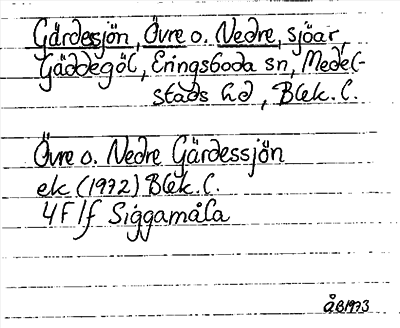 Gärdesjön, Övre o. Nedre, sjöar,
Gäddegöl, Eringsboda sn, Medel-
stads hd, Blek. l.
Övre o. Nedre Gärdessjön
ek (1972) Blek. l.
4F 1f Siggamåla
ÅB1973